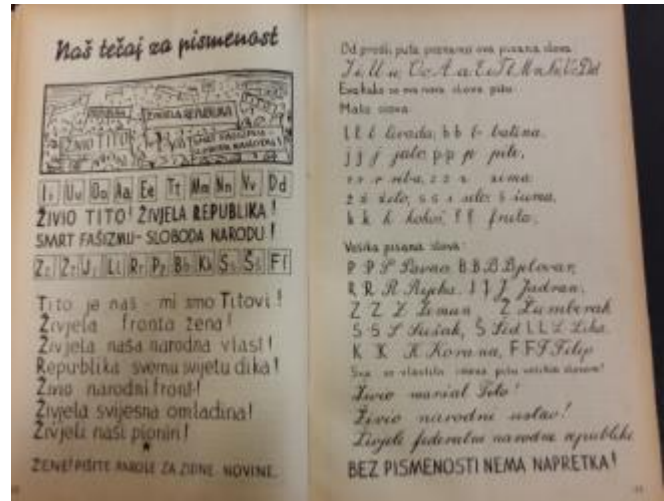 Naš tečaj za pismenost
ŽIVJELA REPUBLIKA
ŽIVIO TITO
SMRT FAŠIZMU
SLOBODA NARODU!
Ii Uu Oo Aa Ee Tt Mm Nn Vv Dd
ŽIVIO TITO! ŽIVJELA REPUBLIKA!
SMRT FAŠIZMU - SLOBODA NARODU!
Zz Žž Jj Ll Rr Pp Bb Kk Ss Šš Ff
Tito je naš - mi smo Titovi!
Živjela fronta žena!
Živjela naša narodna vlast!
Republika svemu svijetu dika!
Živio narodni front!
Živjela svijesna omladina!
Živjeli naši pioniri!
ŽENE! PIŠITE PAROLE ZA ZIDNE NOVINE.
Od prošli puta poznamo ova pisana slova
Evo kako se ova nova slova pišu:
Mala slova:
l l l livada, b b b batina,
j j j jaje, p p p pile,
r r r riba, z z z zima
ž ž želo, s s s selo, š šuma,
k k k kokoš, f f fruta,
Velika pisana slova:
P P P Pavao B B B Bjelovar,
R R R Rijeka, J J J Jadran,
Z Z Z Zeman Ž Žumberak
S S S Sušak, Š Šid L L L Lika
K K K Korana, F F F Filip
Sva se vlastita imena pišu velikim slovom!
Živio maršal Tito!
Živio narodni ustav!
Živjele federalne narodne republike
BEZ PISMENOSTI NEMA NAPRETKA!